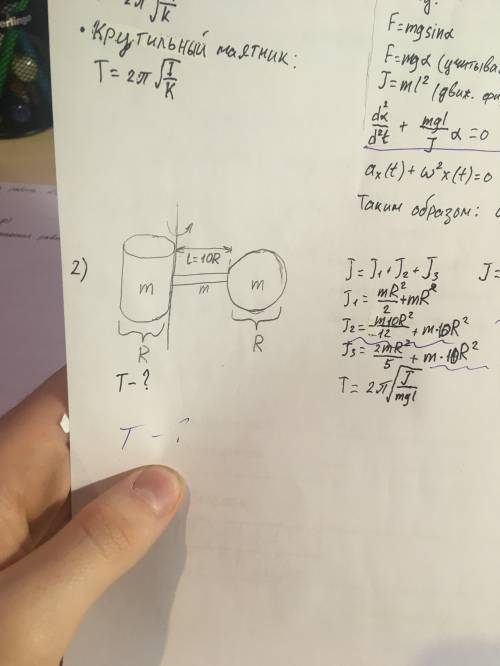 • Крутильный маятник:
T = 2π√(I/K)
F = mg sinα
F = mgα
J = ml²
d²α/d²t + mgl/J α = 0
aₓ(t) + ω²x(t) = 0
Таким образом:
2)
L = 10R
m
m
m
R
R
T - ?
T - ?
J = J₁ + J₂ + J₃
J =
J₁ = mR²/2 + mR²
J₂ = m10R²/12 + m·10R²
J₃ = 2mR²/5 + m·10R²
T = 2π√(J/mgl)